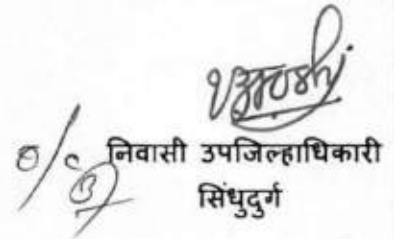 निवासी उपजिल्हाधिकारी
सिंधुदुर्ग